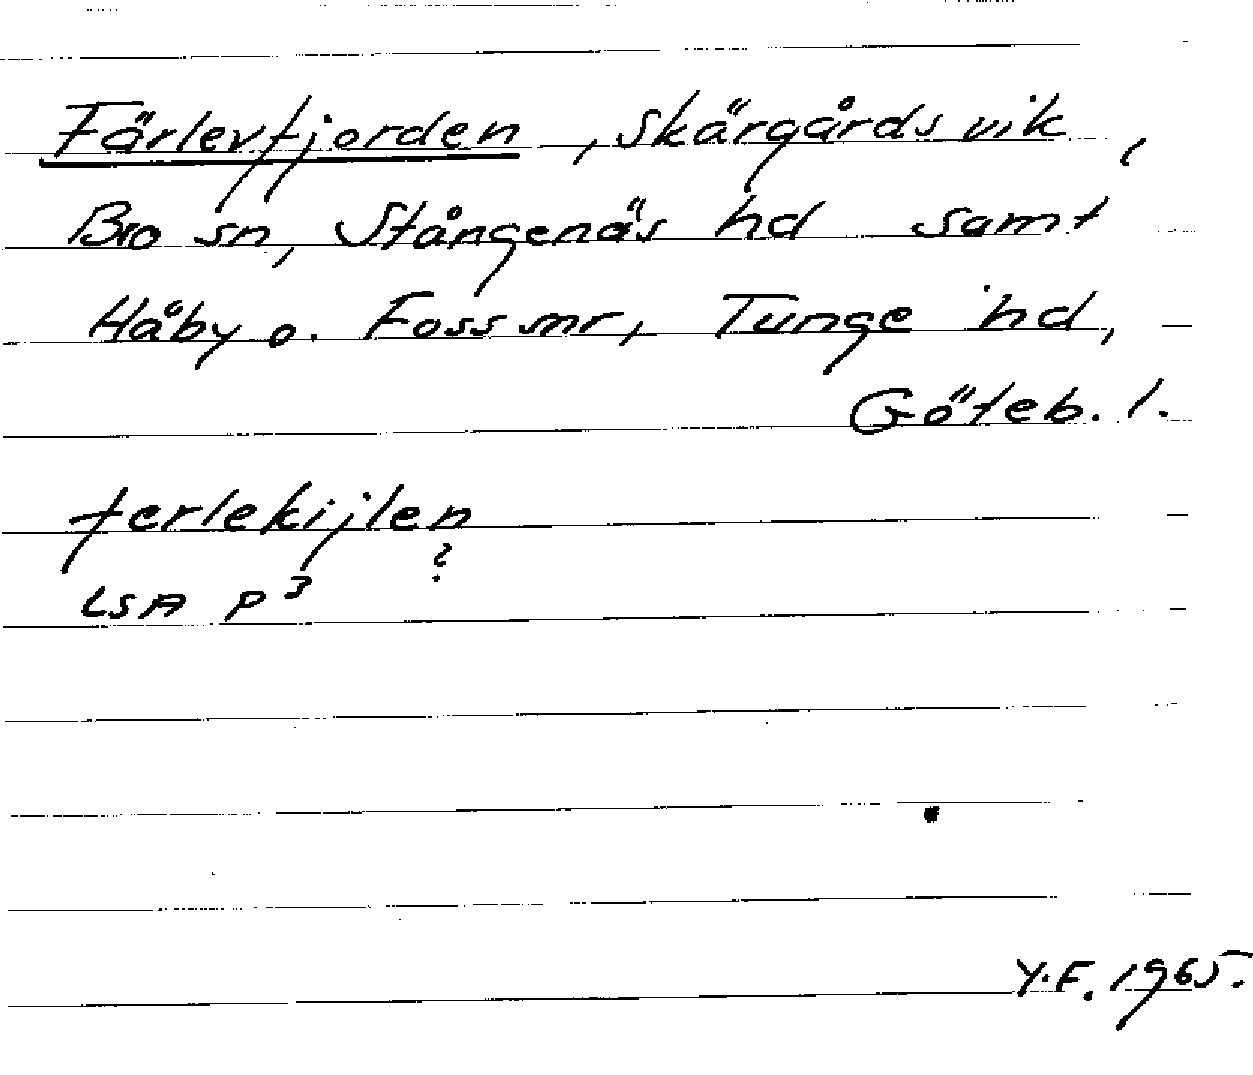 Färlevfjorden, skärgårdsvik,
Bro sn, Stångenäs hd samt
Håby o. Foss snr, Tunge hd,
Göteb. l.
ferlekijlen
?
LSA P3
Y.F. 1965.